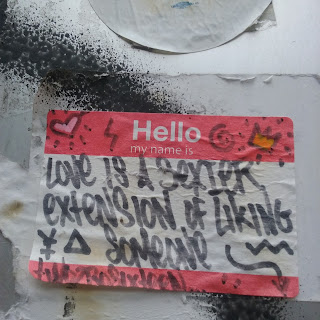 Hello
my name is
LOVE IS A SEXIER
EXTENSION OF LIKING
SOMEONE